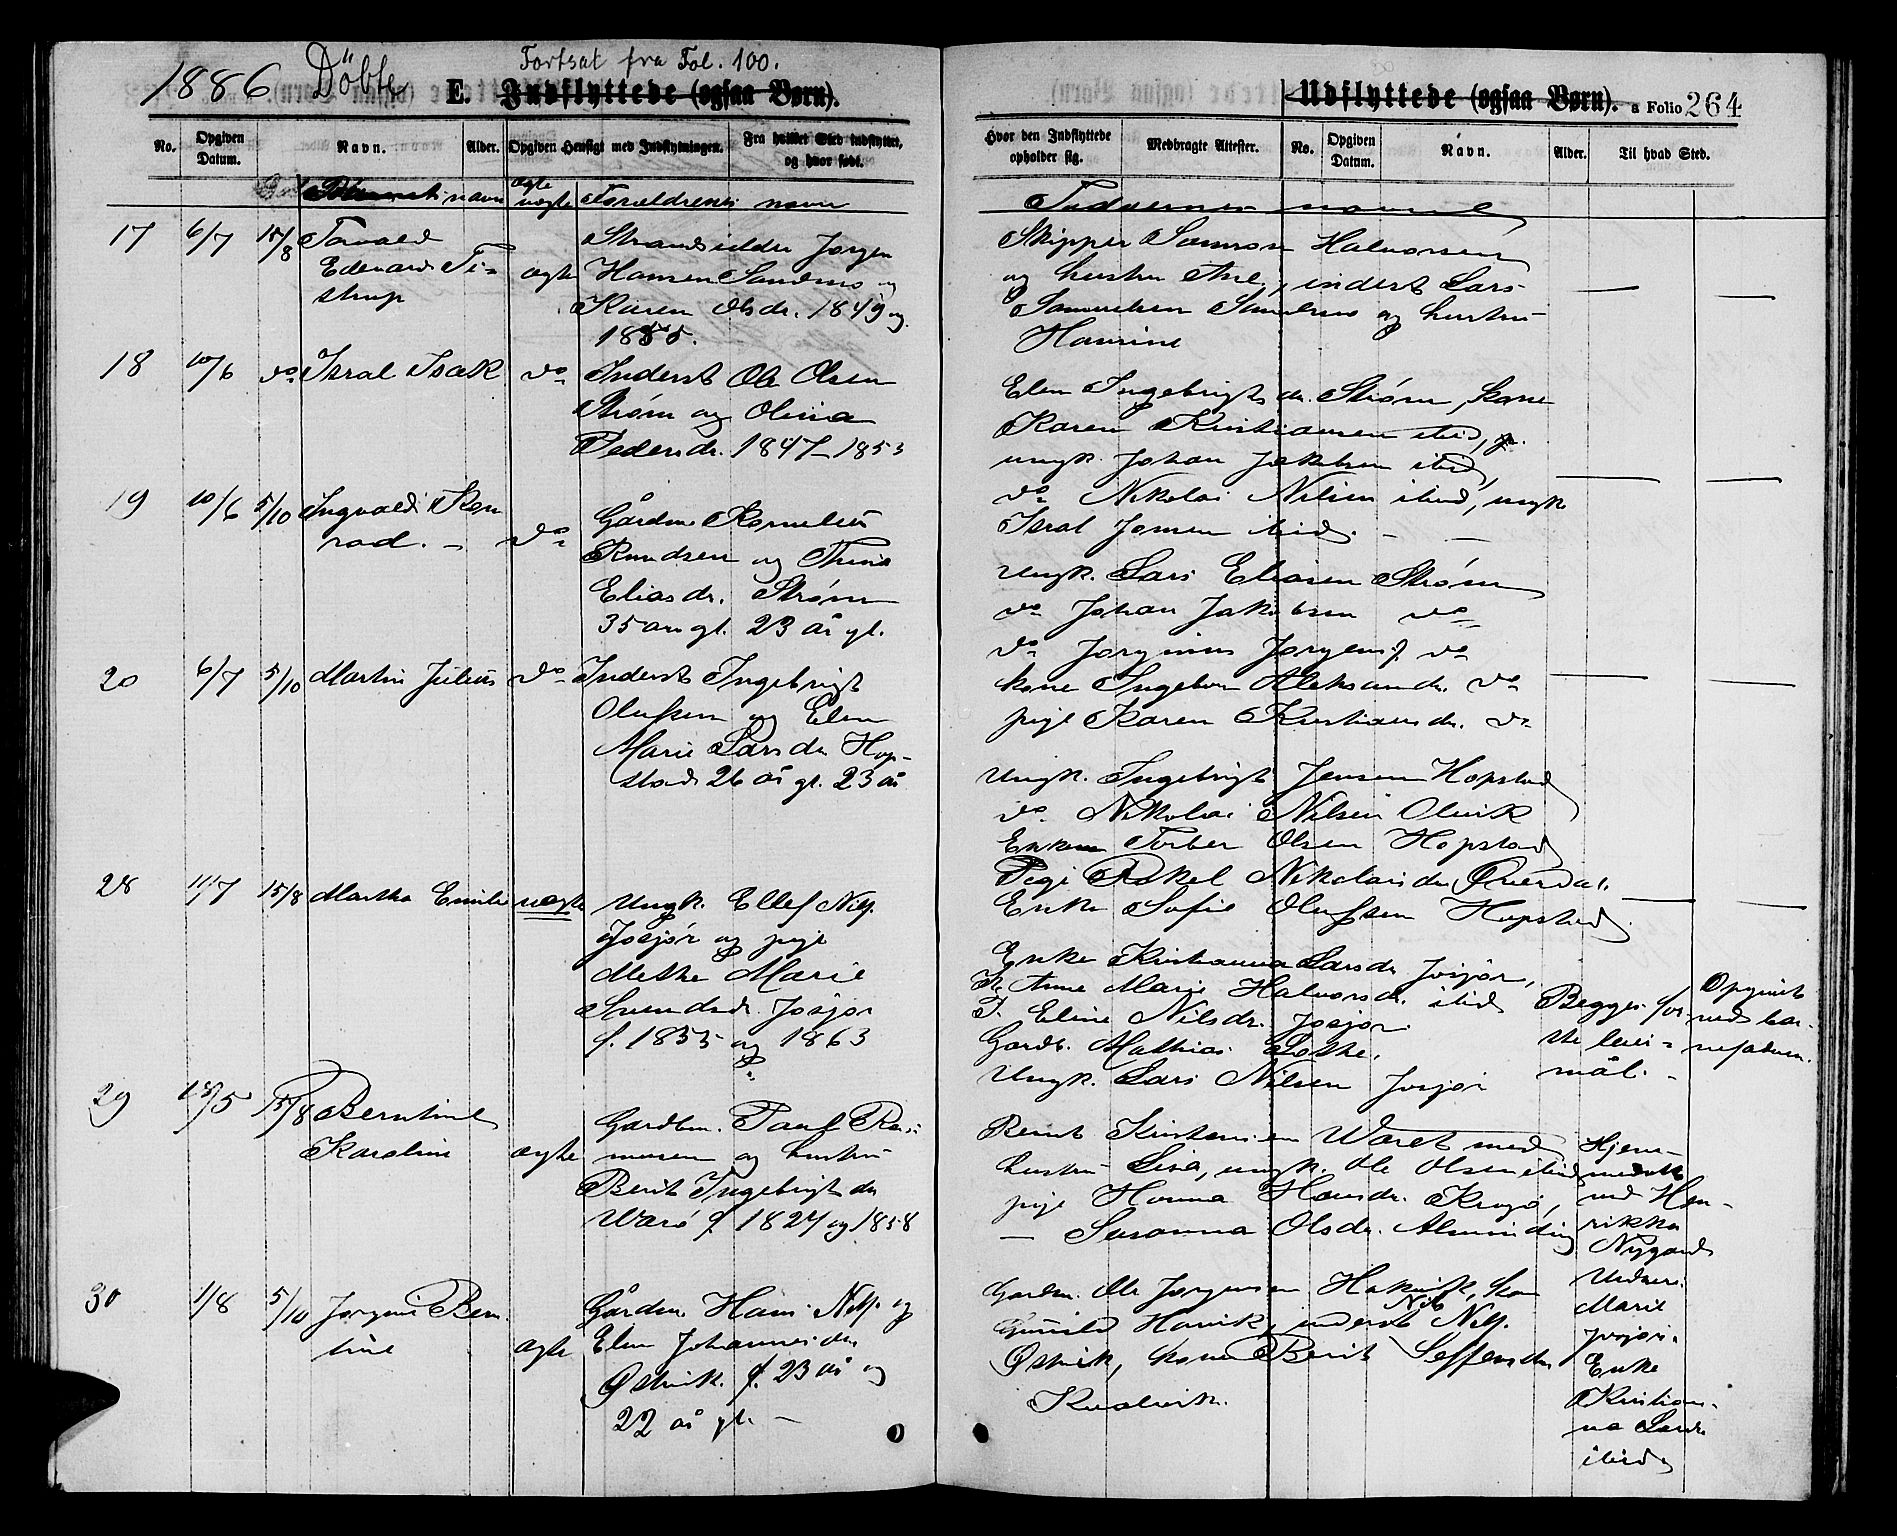 1886 Döbte Fortsat fra Fol. 100.
E. Indflyttede (ogsaa Børn).
No. Opgiven Datum. Navn. Alder. Opgiven Hensigt med Indflytningen. Fra hvilket Sted indflyttet, og hvor født.
navn ægte uægte Forældrenes navn
17 6/7 15/8 Torvald
Edevard Ti-
strup
ægte
Strandsidder Jørgen
Hansen Sandmo og
Karen Olsdr. 1849 og
1855.
18 10/6 do Isral Isak do
Inderst Ole Olsen
Strøm og Olina
Pedersdr. 1847 1853
19 10/6 5/10 Ingvald Kon
rad. - do
Gårdm Kornelius
Knudsen og Trine
Eliasdr. Strøm
35 år gl. 23 år gl.
20 6/7 5/10 Martin Julius do
Inderst Ingebrigt
Olufsen og Elen
Marie Larsdr Hop-
stad 26 år gl. 23 år
28 11/7 15/8 Martha Emilie uægte
Ungk. Ellef Nils.
Josjör og pige
Methe Marie
Svendsdr. Josjør
f. 1855 og 1863
29 15/8 Berntine
Karoline ægte
Gardbm. Paul Ras-
musen og hustru
Berit Ingebrigtsdr
Warö f. 1824 og 1858
30 1/8 5/10 Jørgine Bern
tine ægte
Gårdm. Hans Nils. og
Elen Johannesdr
Østvik. f. 23 år og
22 år gl. -
Udflyttede (ogsaa Børn). a Folio 264
Hvor den Indflyttede opholder sig. Medbragte Attester. No. Opgiven Datum. Navn. Alder. Til hvad Sted.
Faddernes navne
Skipper Samson Halvorsen
og hustru Ane, inderst Lars
Samuelsen Sandmo og hustru
Hansine
Elen Ingebrigtsdr. Strøm, kone
Karen Kristiansen ibid,
ungk. Johan Jakobsen ibid
do Nikolai Nilsen ibid, ungk
Isral Jonsen ibid. - -
Ungk. Lars Eliasen Strøm
do Johan Jakobsen do
do Jørginus Jørgens. do
kone Ingebor Aleksandr. do
pige Karen Kristiansdr. do
Ungk. Ingebrigt Jensen Hopstad
do. Nikolai Nilsen Olvik
Enkem Torber Olsen Hopstad
Pige Rakel Nikolaisdr Øverdal.
Enke Sofie Olufsen Hopstad
Enke Kristianna Larsdr Josjør,
K. Anne Marie Halvorsdr. ibid
P. Eline Nilsdr. Josjør.
Gardb. Mathias Lothe.
Ungk. Lars Nilsen Josjör
Begges før-
ste leier-
mål. -
Opgivet
ved bar-
nefaderen.
Bernt Kristensen Waret med
hustru Lisa, ungk. Ole Olsen ibid
pige Hanna Hansdr. Kragø,
— Susanna Olsdr. Alminding
Hjem-
medøbt
ved Hen-
rikka
Nygard
Gardm. Ole Jørgensen Hakvik, kone
Gunild Harvik, inderst Nils Nils.
Østvik, kone Berit Seffensdr
Kvalvik.
Vidner:
Marie
Josjør.
Enke
Kristian-
na Larsdr
ibid